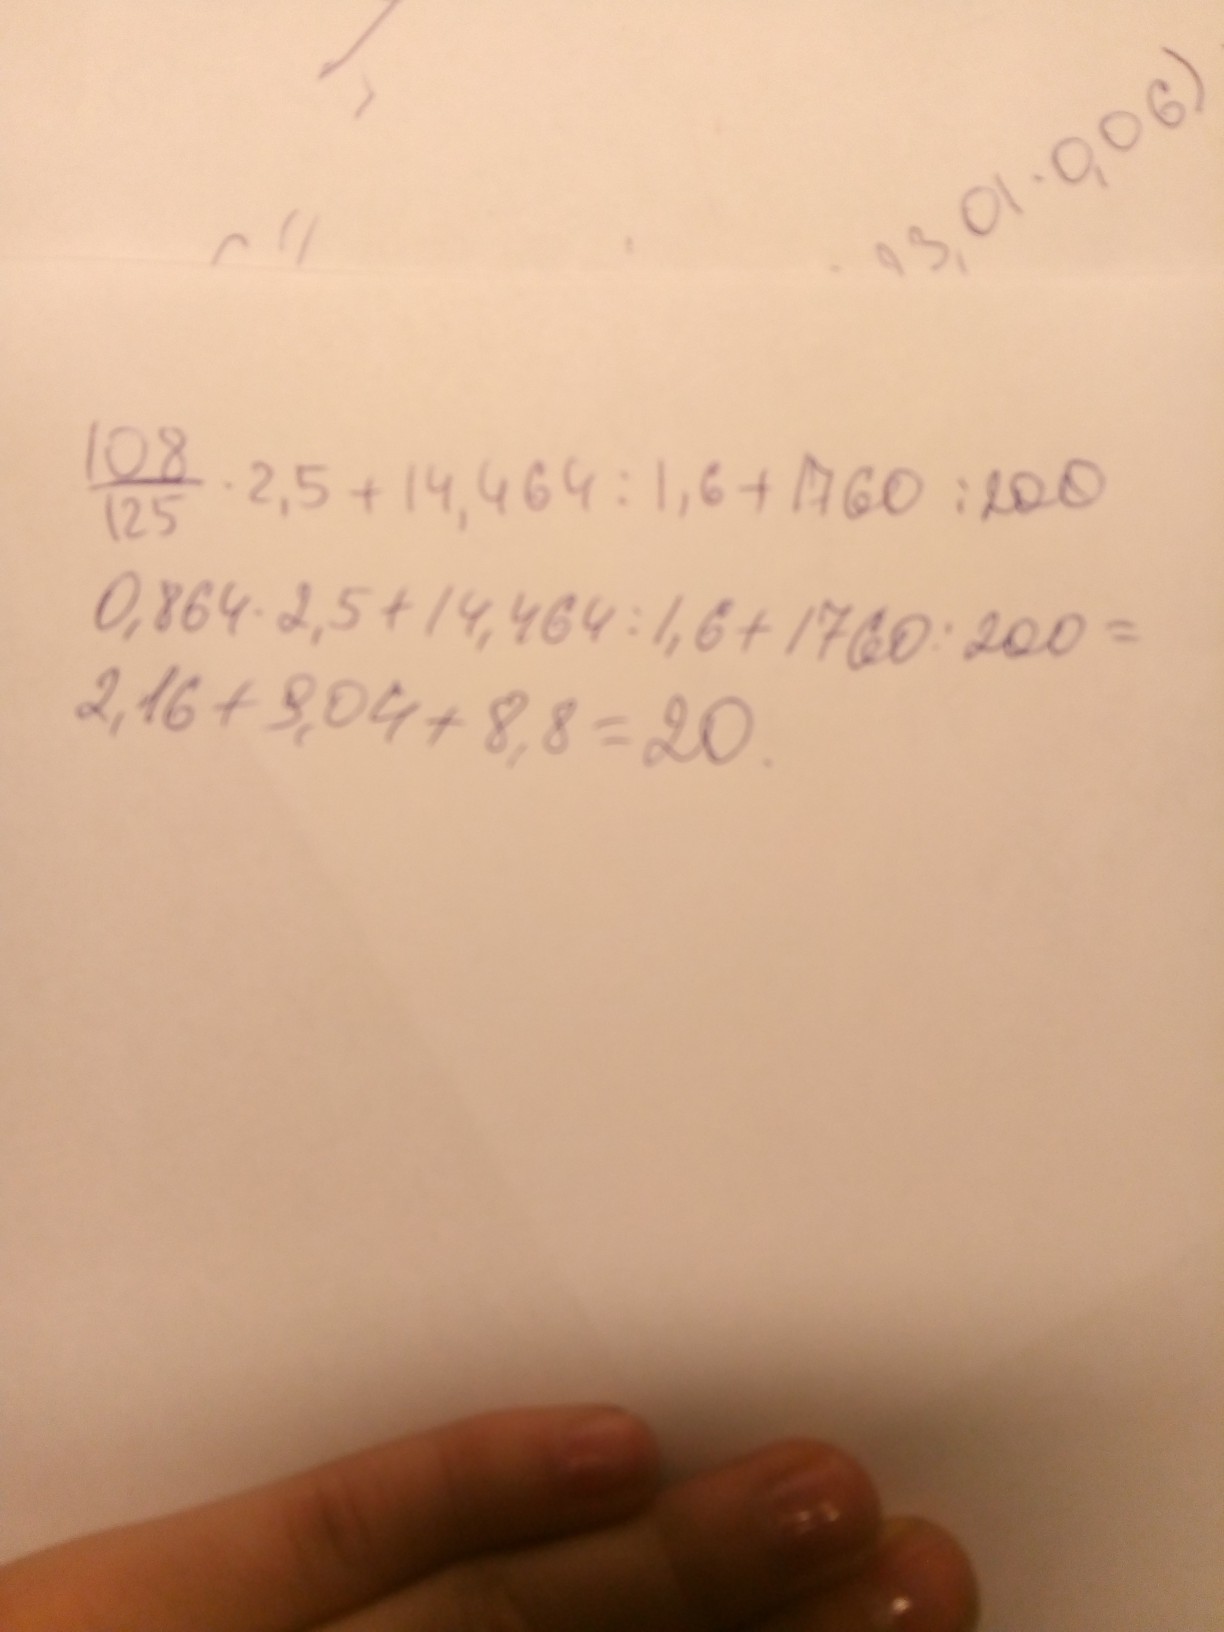 13,01 · 0,06)
108/125 · 2,5 + 14,464 : 1,6 + 1760 : 200
0,864 · 2,5 + 14,464 : 1,6 + 1760 : 200 =
2,16 + 9,04 + 8,8 = 20.